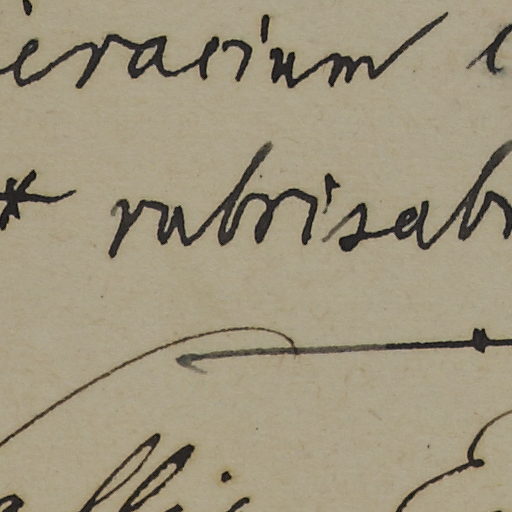 ieracium
* rubrisabi
allis